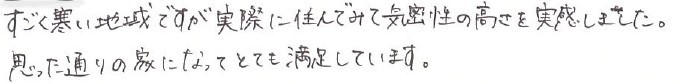 すごく寒い地域ですが実際に住んでみて気密性の高さを実感しました。
思った通りの家になってとても満足しています。